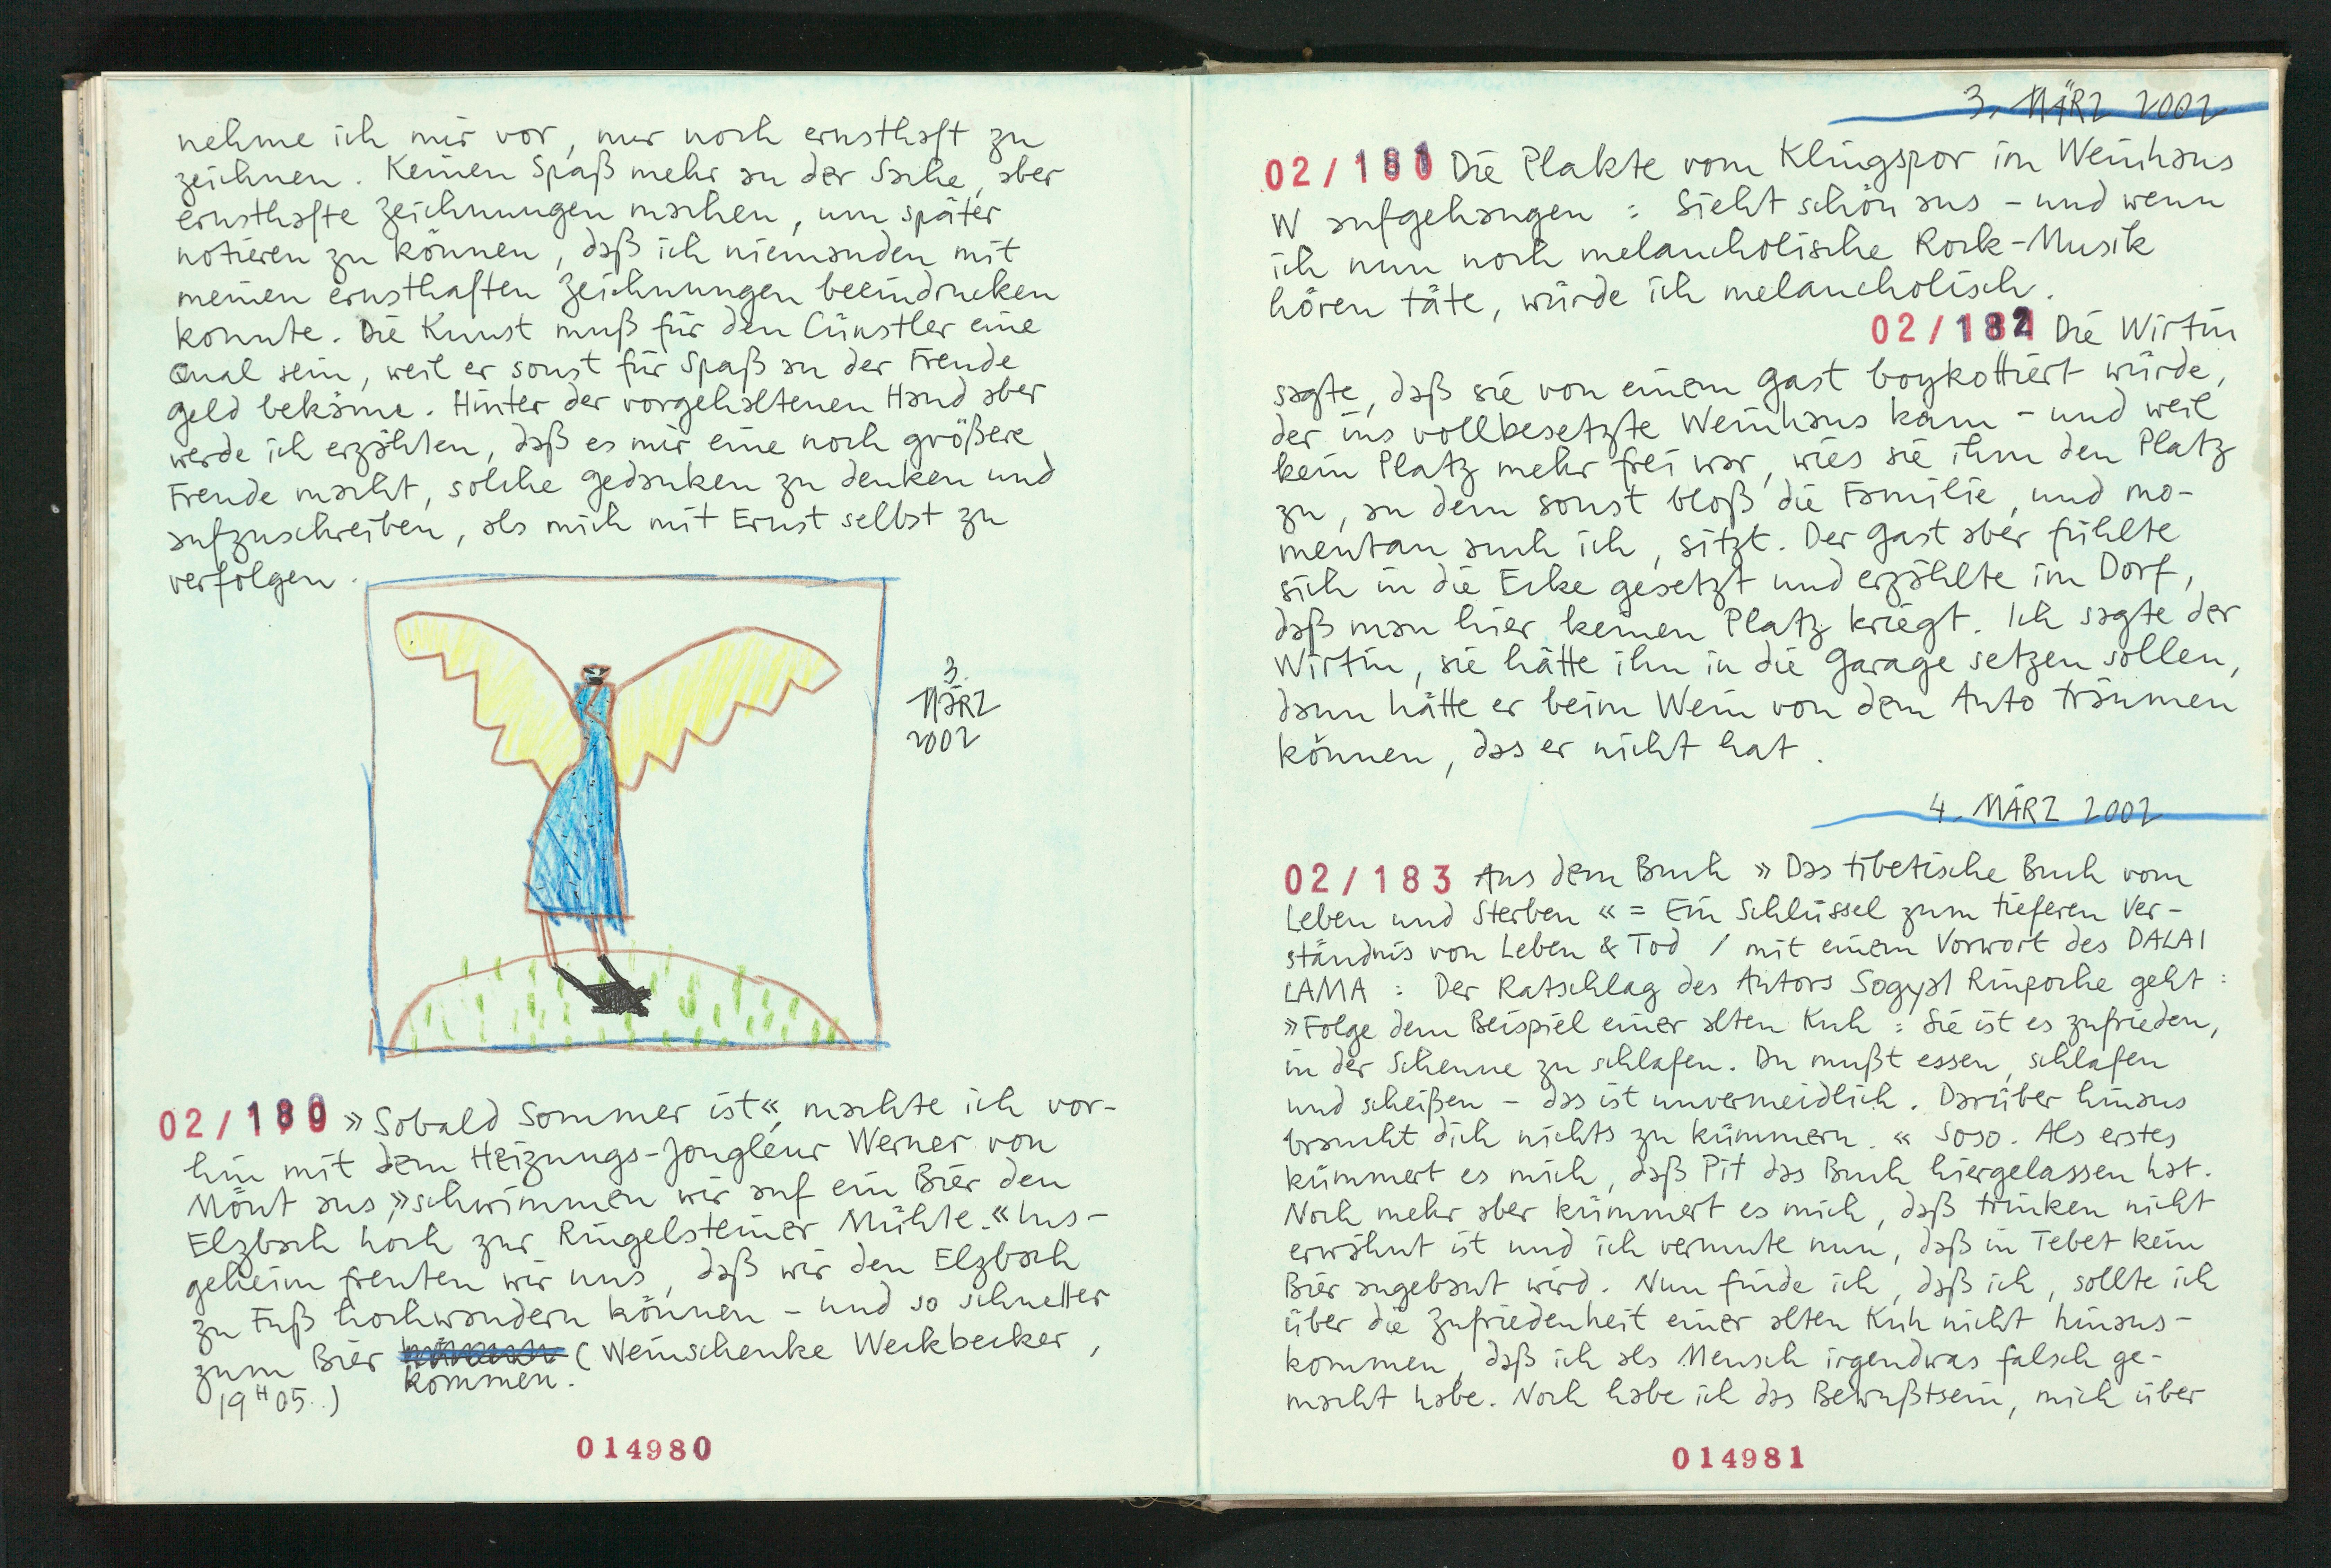 nehme ich mir vor, nur noch ernsthaft zu
zeichnen. Keinen Spaß mehr an der Sache, aber
ernsthafte Zeichnungen machen, um später
notieren zu können, daß ich niemanden mit
meinen ernsthaften Zeichnungen beeindrucken
konnte. Die Kunst muß für den Cünstler eine
Qual sein, weil er sonst für Spaß an der Freude
Geld bekäme. Hinter der vorgehaltenen Hand aber
werde ich erzählen, daß es mir eine noch größere
Freude macht, solche Gedanken zu denken und
aufzuschreiben, als mich mit Ernst selbst zu
verfolgen.
3.
MÄRZ
2002
02/180 »Sobald Sommer ist«, machte ich vor-
hin mit dem Heizungs-Jongleur Werner von
Mönt aus, »schwimmen wir auf ein Bier den
Elzbach hoch zur Ringelsteiner Mühle.« Ins-
geheim freuten wir uns, daß wir den Elzbach
zu Fuß hochwandern können – und so schneller
zum Bier (Weinschenke Weckbecker,
kommen.
19 H 05.)
014980
3. MÄRZ 2002
02/181 Die Plakte vom Klingspor im Weinhaus
W aufgehangen : Sieht schön aus – und wenn
ich nun noch melancholische Rock-Musik
hören täte, würde ich melancholisch.
02/182 Die Wirtin
sagte, daß sie von einem Gast boykottiert würde,
der ins vollbesetzte Weinhaus kam – und weil
kein Platz mehr frei war, wies sie ihm den Platz
zu, an dem sonst bloß die Familie, und mo-
mentan auch ich, sitzt. Der Gast aber fühlte
sich in die Ecke gesetzt und erzählte im Dorf,
daß man hier keinen Platz kriegt. Ich sagte der
Wirtin, sie hätte ihn in die Garage setzen sollen,
dann hätte er beim Wein von dem Auto träumen
können, das er nicht hat.
4. MÄRZ 2002
02/183 Aus dem Buch »Das tibetische Buch vom
Leben und Sterben« = Ein Schlüssel zum tieferen Ver-
ständnis von Leben & Tod / mit einem Vorwort des DALAI
LAMA : Der Ratschlag des Autors Sogyal Rinpoche geht :
»Folge dem Beispiel einer alten Kuh : Sie ist es zufrieden,
in der Scheune zu schlafen. Du mußt essen, schlafen
und scheißen – das ist unvermeidlich. Darüber hinaus
braucht dich nichts zu kümmern.« Soso. Als erstes
kümmert es mich, daß Pit das Buch hiergelassen hat.
Noch mehr aber kümmert es mich, daß trinken nicht
erwähnt ist und ich vermute nun, daß in Tebet kein
Bier angebaut wird. Nun finde ich, daß ich, sollte ich
über die Zufriedenheit einer alten Kuh nicht hinaus-
kommen, daß ich als Mensch irgendwas falsch ge-
macht habe. Noch habe ich das Bewußtsein, mich über
014981